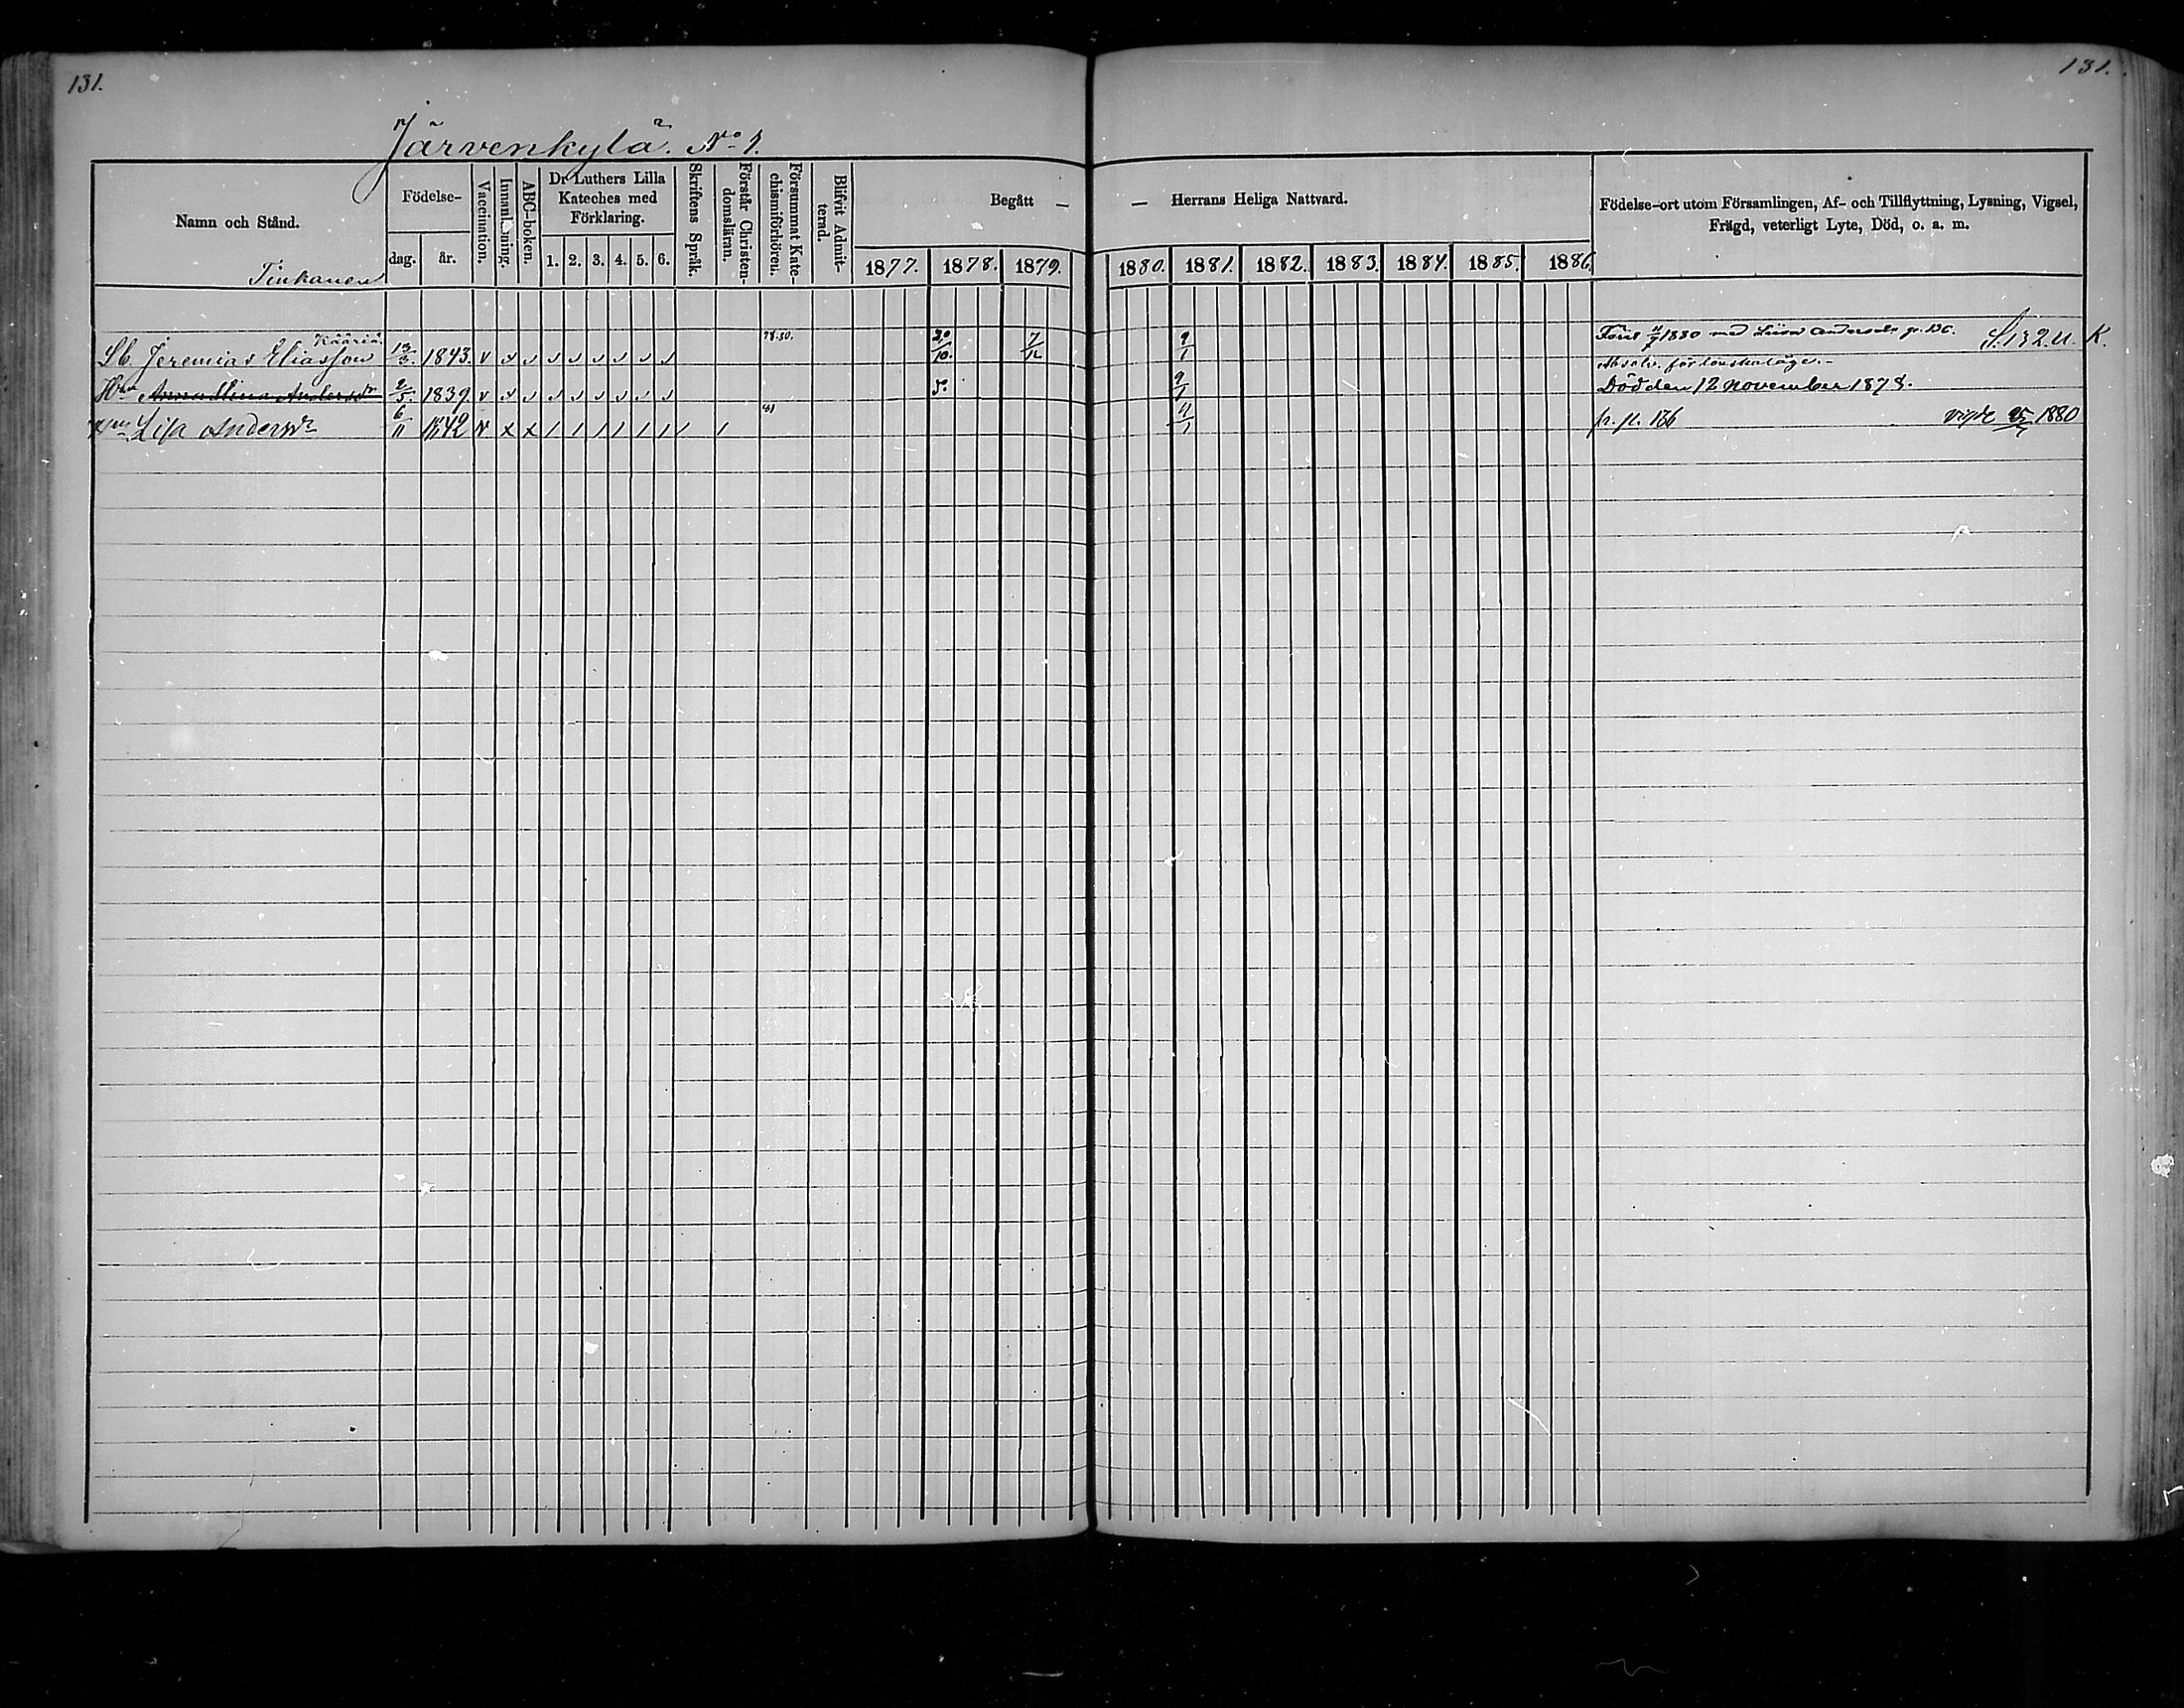 131.
131.
Järvenkylä. No 1.
Namn och Stånd.
Födelse-
dag. år.
Vaccination.
Innanläsning.
ABC-boken.
Dr Luthers Lilla Kateches med Förklaring.
1. 2. 3. 4. 5. 6.
Skriftens Språk.
Förstår Christendomsläran.
Försummat Katechismiförhören.
Blifvit Admitterad.
Begått — — Herrans Heliga Nattvard.
1877. 1878. 1879. 1880. 1881. 1882. 1883. 1884. 1885. 1886.
Födelse-ort utom Församlingen, Af- och Tillflyttning, Lysning, Vigsel,
Frägd, veterligt Lyte, Död, o. a. m.
Tiukanen
Kääriä
Jeremias Eliasson 13/3. 1843. v 78.80. 20/10. 7/12 9/1 1880 med Andersdr p. 136. S. 132. U. K.
för lönskaläge.
Hu Anna Stina Andersdr 2/5. 1839. v do. 9/1 Död den 12 November 1878.
Lisa Andersdr 6/11 1842 v x x 1 1 1 1 1 1 1 1 81 9/1 fr. p. 136 vigde 25/7 1880